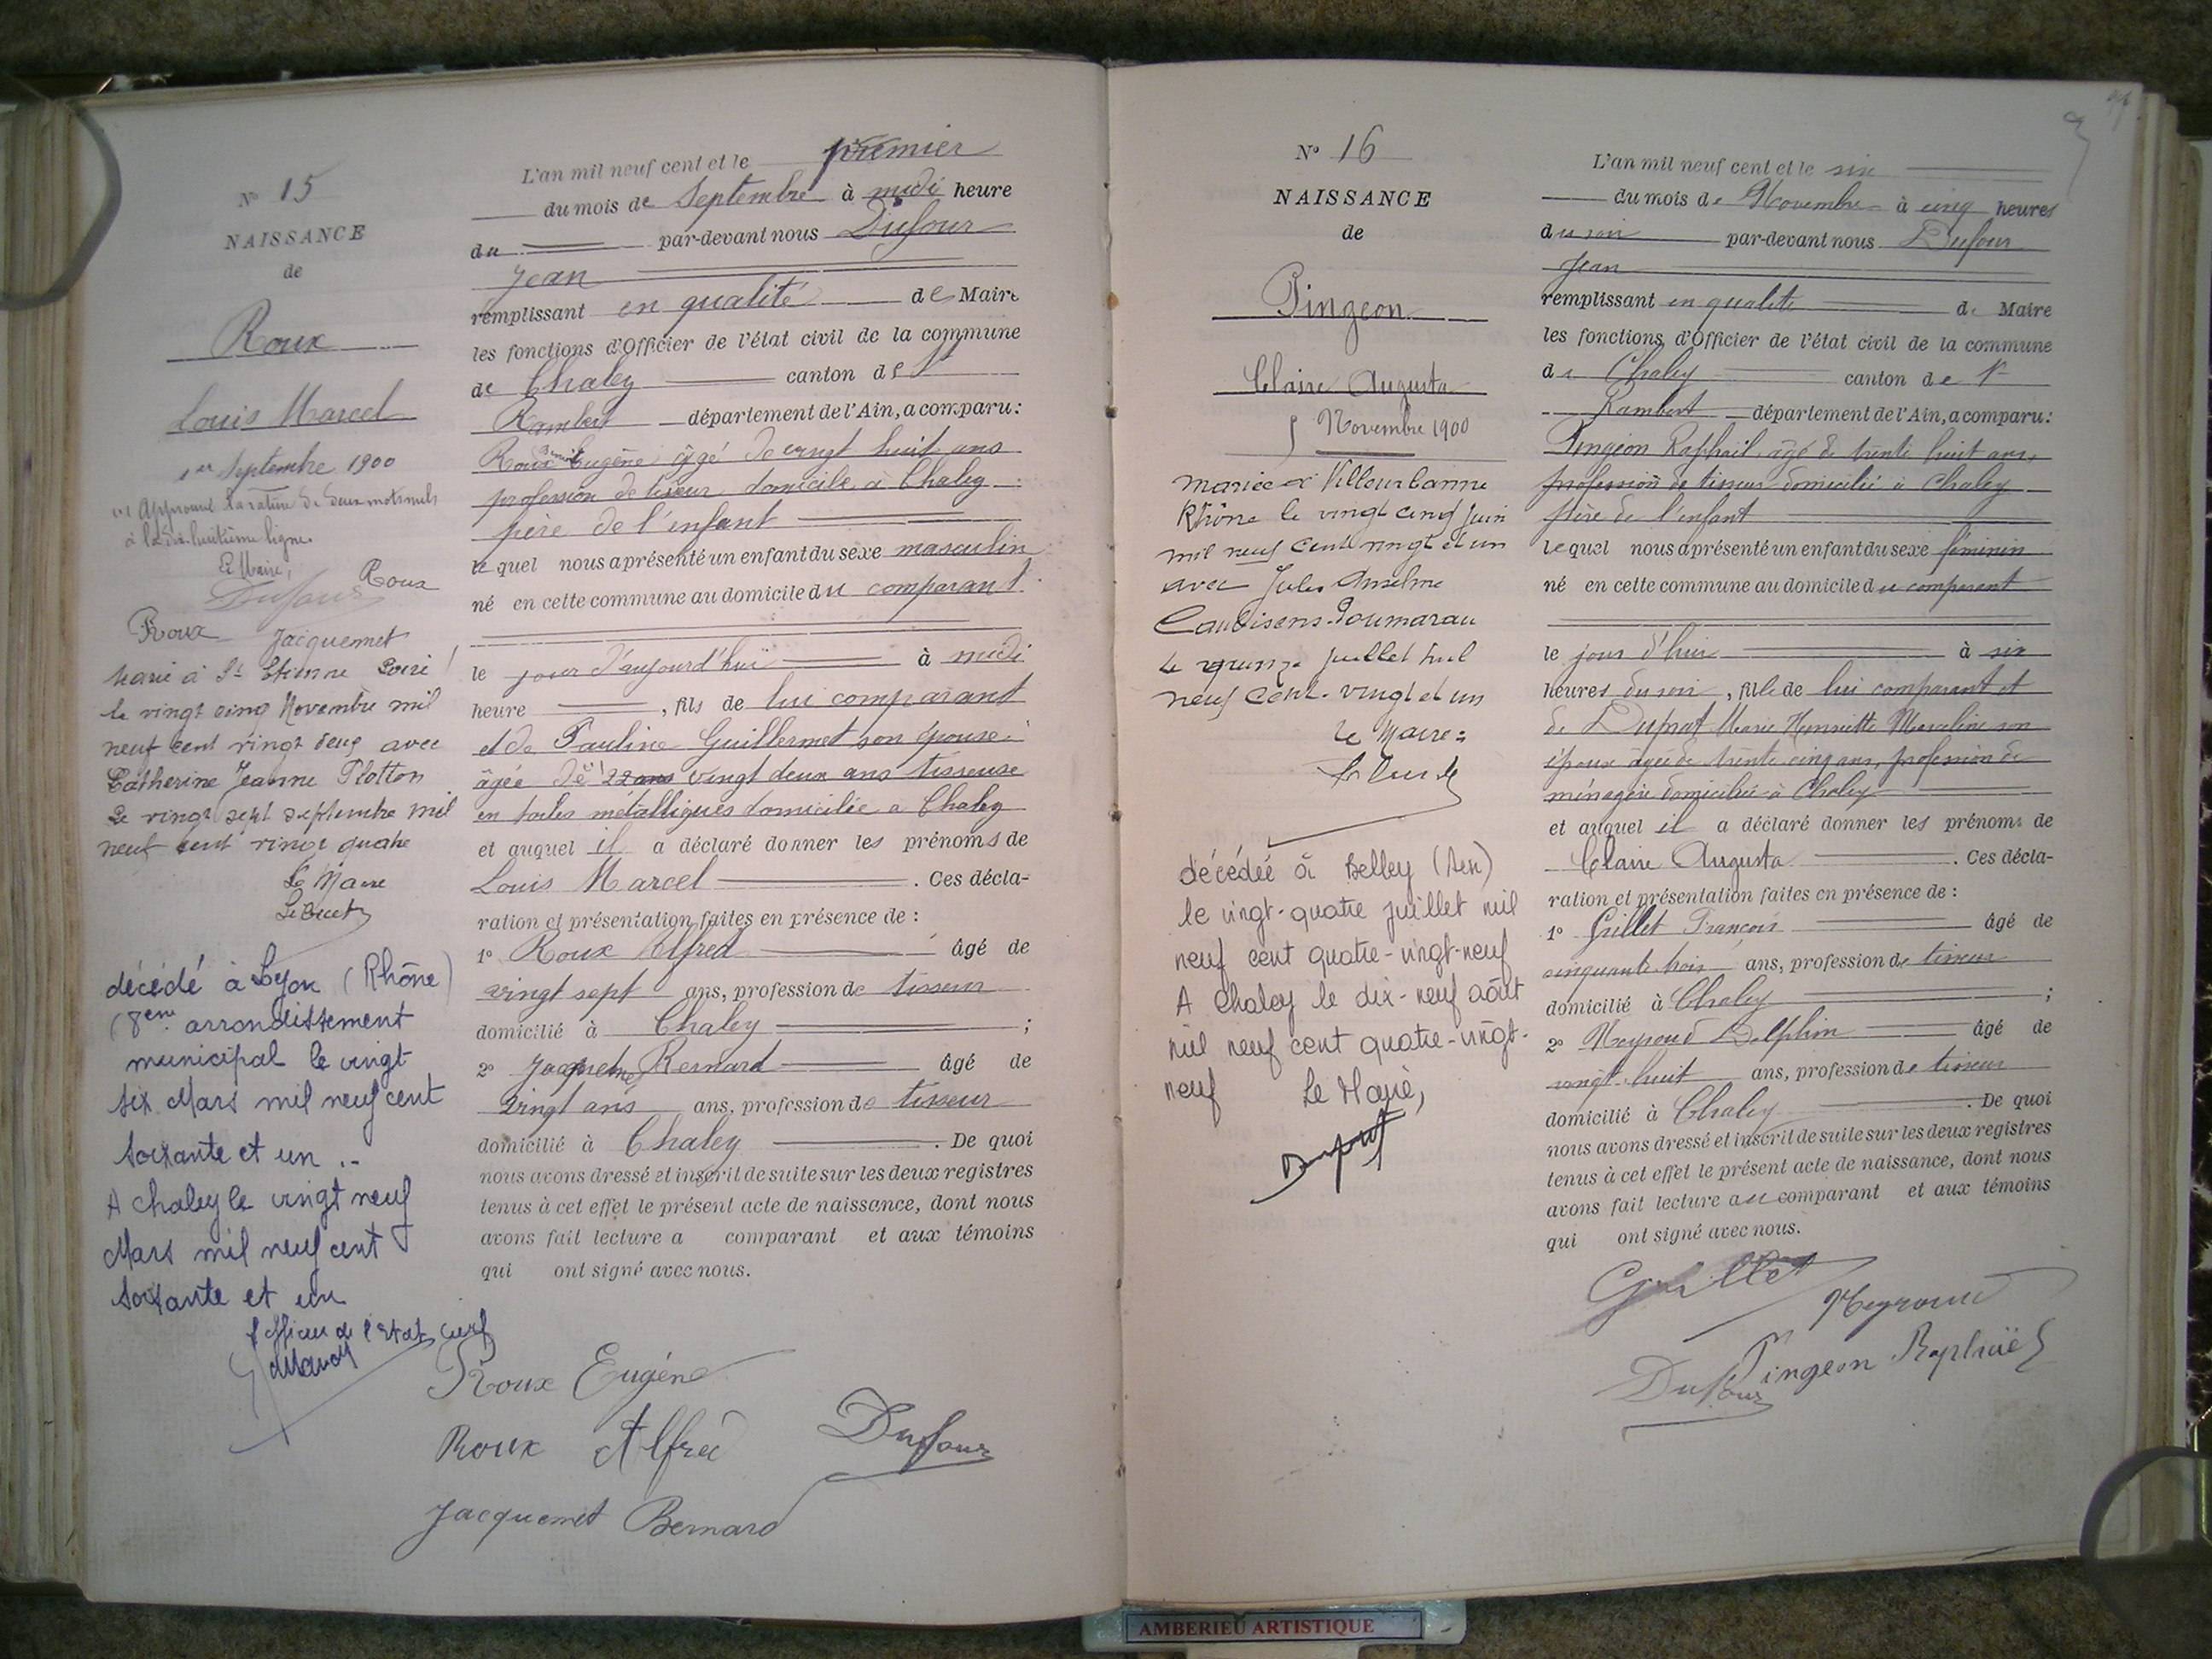 N° 15
NAISSANCE
de
Roux
Louis Marcel
1er Septembre 1900
Approuvé la rature de deux mots nuls
à la dix-huitième ligne.
Le Maire,
Dufour Roux
Roux Jacquemet
Marié à St Etienne Loire
le vingt cinq Novembre mil
neuf cent vingt deux avec
Catherine Jeanne Plotton
Le vingt sept septembre mil
neuf cent vingt quatre
Le Maire
décédé à Lyon (Rhône)
(8eme arrondissement
municipal le vingt
six Mars mil neuf cent
soixante et un .-
A Chaley le vingt neuf
Mars mil neuf cent
soixante et un
l'officier de l'Etat Civil
L'an mil neuf cent et le premier
du mois de Septembre à midi heure
du par-devant nous Dufour
Jean
remplissant en qualité de Maire
les fonctions d'Officier de l'état civil de la commune
de Chaley canton de St
Rambert département de l'Ain, a comparu:
Roux Eugène âgé de vingt huit ans
profession de tisseur domicilié à Chaley
père de l'enfant
lequel nous a présenté un enfant du sexe masculin
né en cette commune au domicile du comparant.
le jour d'aujourd'hui à midi
heure , fils de lui comparant
et de Pauline Guillermet son épouse
âgée de 22 ans vingt deux ans tisseuse
en toiles métalliques domiciliée a Chaley
et auquel il a déclaré donner les prénoms de
Louis Marcel . Ces décla-
ration et présentation faites en présence de :
1° Roux Alfred âgé de
vingt sept ans, profession de tisseur
domicilié à Chaley ;
2° Jacquemet Bernard âgé de
vingt ans ans, profession de tisseur
domicilié à Chaley . De quoi
nous avons dressé et inscrit de suite sur les deux registres
tenus à cet effet le présent acte de naissance, dont nous
avons fait lecture a comparant et aux témoins
qui ont signé avec nous.
Roux Eugène
Roux Alfred Dufour
Jacquemet Bernard
N° 16
NAISSANCE
de
Pingeon
Claire Augusta
Novembre 1900
mariée à Villeurbanne
Rhône le vingt cinq juin
mil neuf cent vingt et un
avec Jules Anselme
le quinze juillet mil
neuf cent vingt et un
Le Maire:
décédée à Belley (Ain)
le vingt-quatre juillet mil
neuf cent quatre-vingt-neuf
A Chaley le dix-neuf août
mil neuf cent quatre-vingt-
neuf Le Maire,
L'an mil neuf cent et le six
du mois de Novembre à cinq heures
du soir par-devant nous Dufour
Jean
remplissant en qualité de Maire
les fonctions d'Officier de l'état civil de la commune
de Chaley canton de St
Rambert département de l'Ain, a comparu:
Pingeon Raphaël âgé de trente huit ans,
profession de tisseur domicilié à Chaley
père de l'enfant
lequel nous a présenté un enfant du sexe féminin
né en cette commune au domicile du comparant
le jour d'hier à six
heures du soir , fille de lui comparant et
de Duprat Marie Henriette Marceline son
épouse âgée de trente cinq ans, profession de
ménagère domiciliée à Chaley
et auquel il a déclaré donner les prénoms de
Claire Augusta . Ces décla-
ration et présentation faites en présence de :
1° Grillet François âgé de
cinquante trois ans, profession de tisseur
domicilié à Chaley ;
2° Meyroud Delphin âgé de
vingt huit ans, profession de tisseur
domicilié à Chaley . De quoi
nous avons dressé et inscrit de suite sur les deux registres
tenus à cet effet le présent acte de naissance, dont nous
avons fait lecture au comparant et aux témoins
qui ont signé avec nous.
Grillet
Meyroud
Pingeon Raphaël
Dufour
AMBERIEU ARTISTIQUE